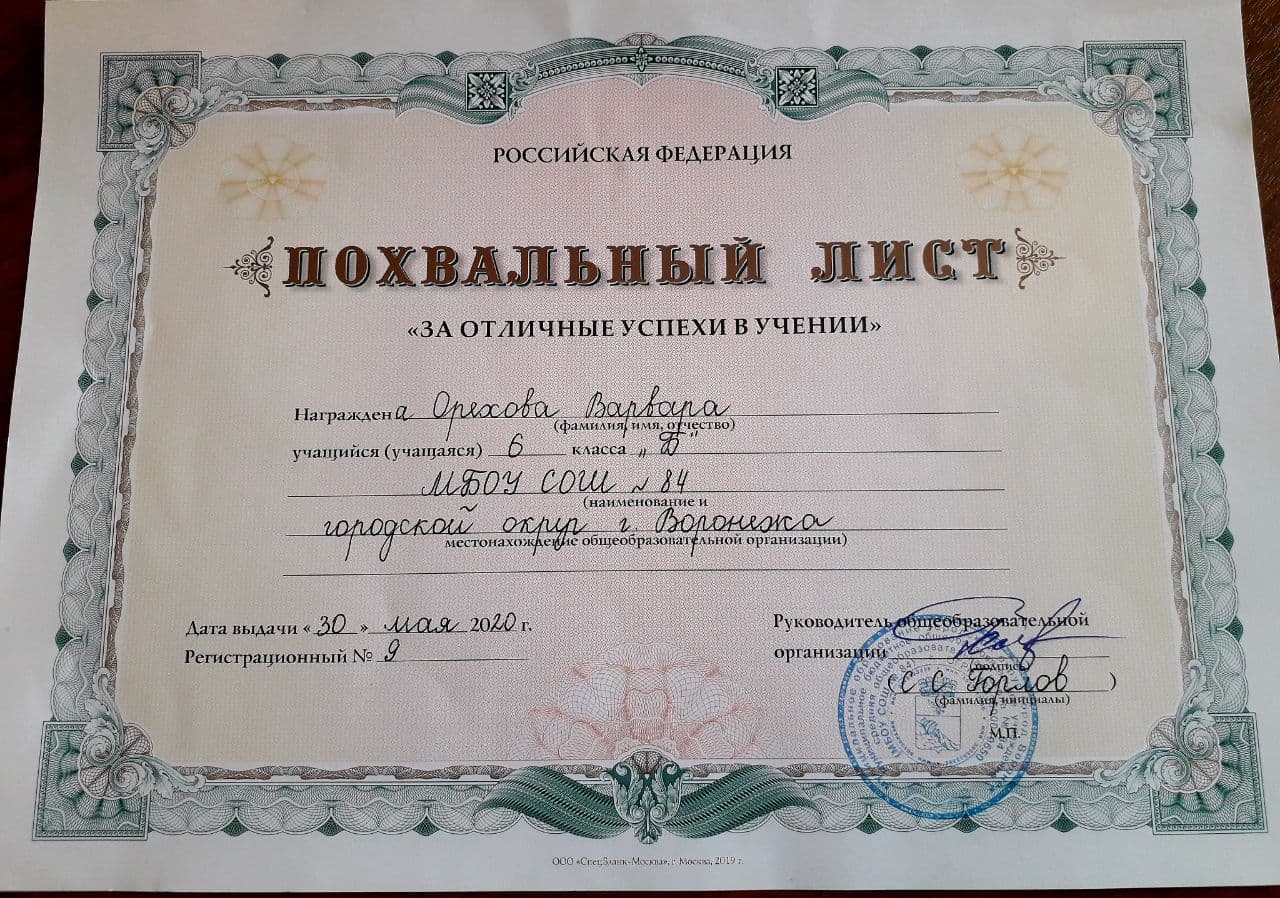 РОССИЙСКАЯ ФЕДЕРАЦИЯ
ПОХВАЛЬНЫЙ ЛИСТ
«ЗА ОТЛИЧНЫЕ УСПЕХИ В УЧЕНИИ»
Награждена Орехова Варвара
(фамилия, имя, отчество)
учащийся (учащаяся) 6 класса „Б"
МБОУ СОШ № 84
(наименование и
городской округ г. Воронежа
местонахождение общеобразовательной организации)
Дата выдачи «30» мая 2020 г.
Регистрационный № 9
Руководитель общеобразовательной
организации
(подпись)
(С С Горлов)
(фамилия, инициалы)
М.П.
ООО «СпецБланк-Москва», г. Москва, 2019 г.